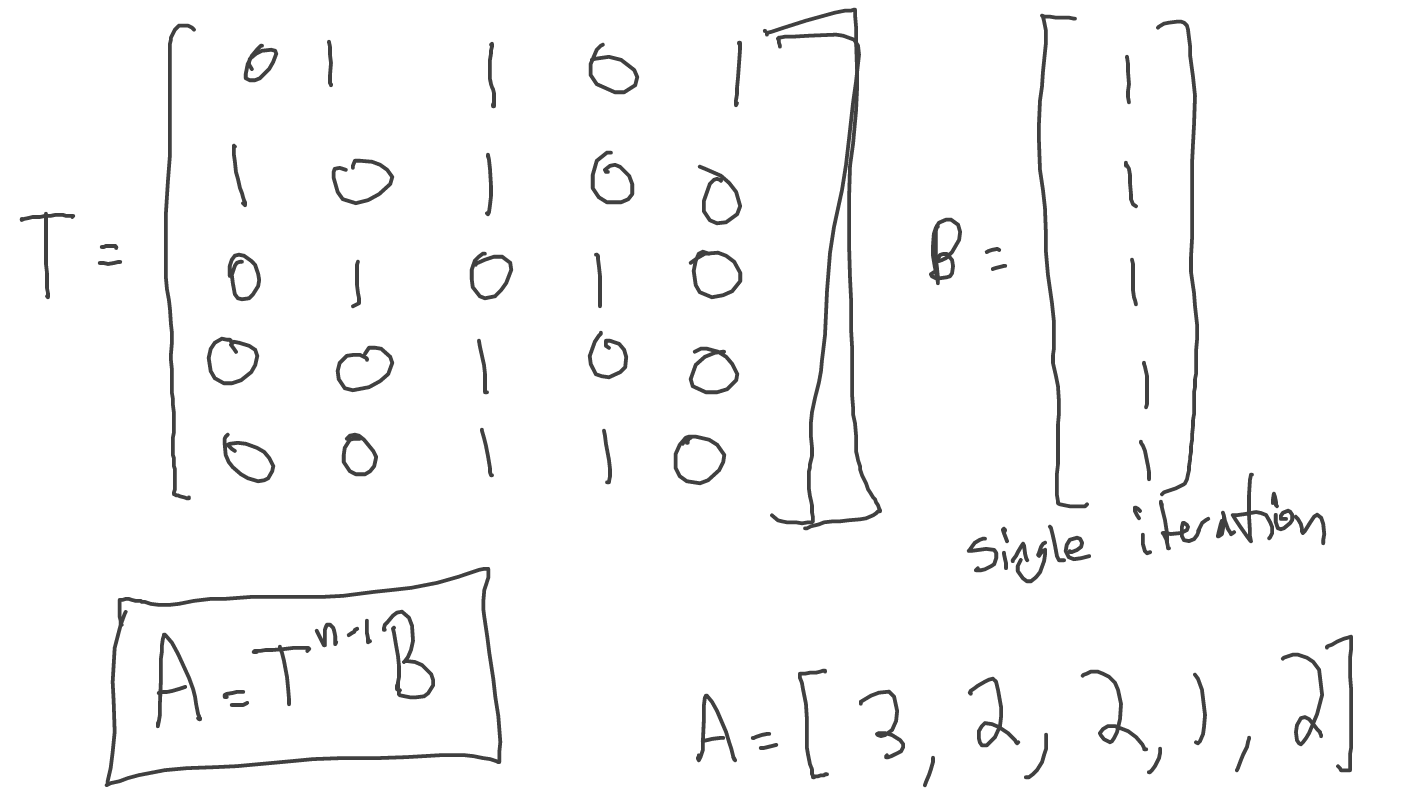 T = [ 0 1 1 0 1
1 0 1 0 0
0 1 0 1 0
0 0 1 0 0
0 0 1 1 0 ]
B = [ 1
1
1
1
1 ]
single iteration
A = T^{n-1} B
A = [ 3, 2, 2, 1, 2 ]